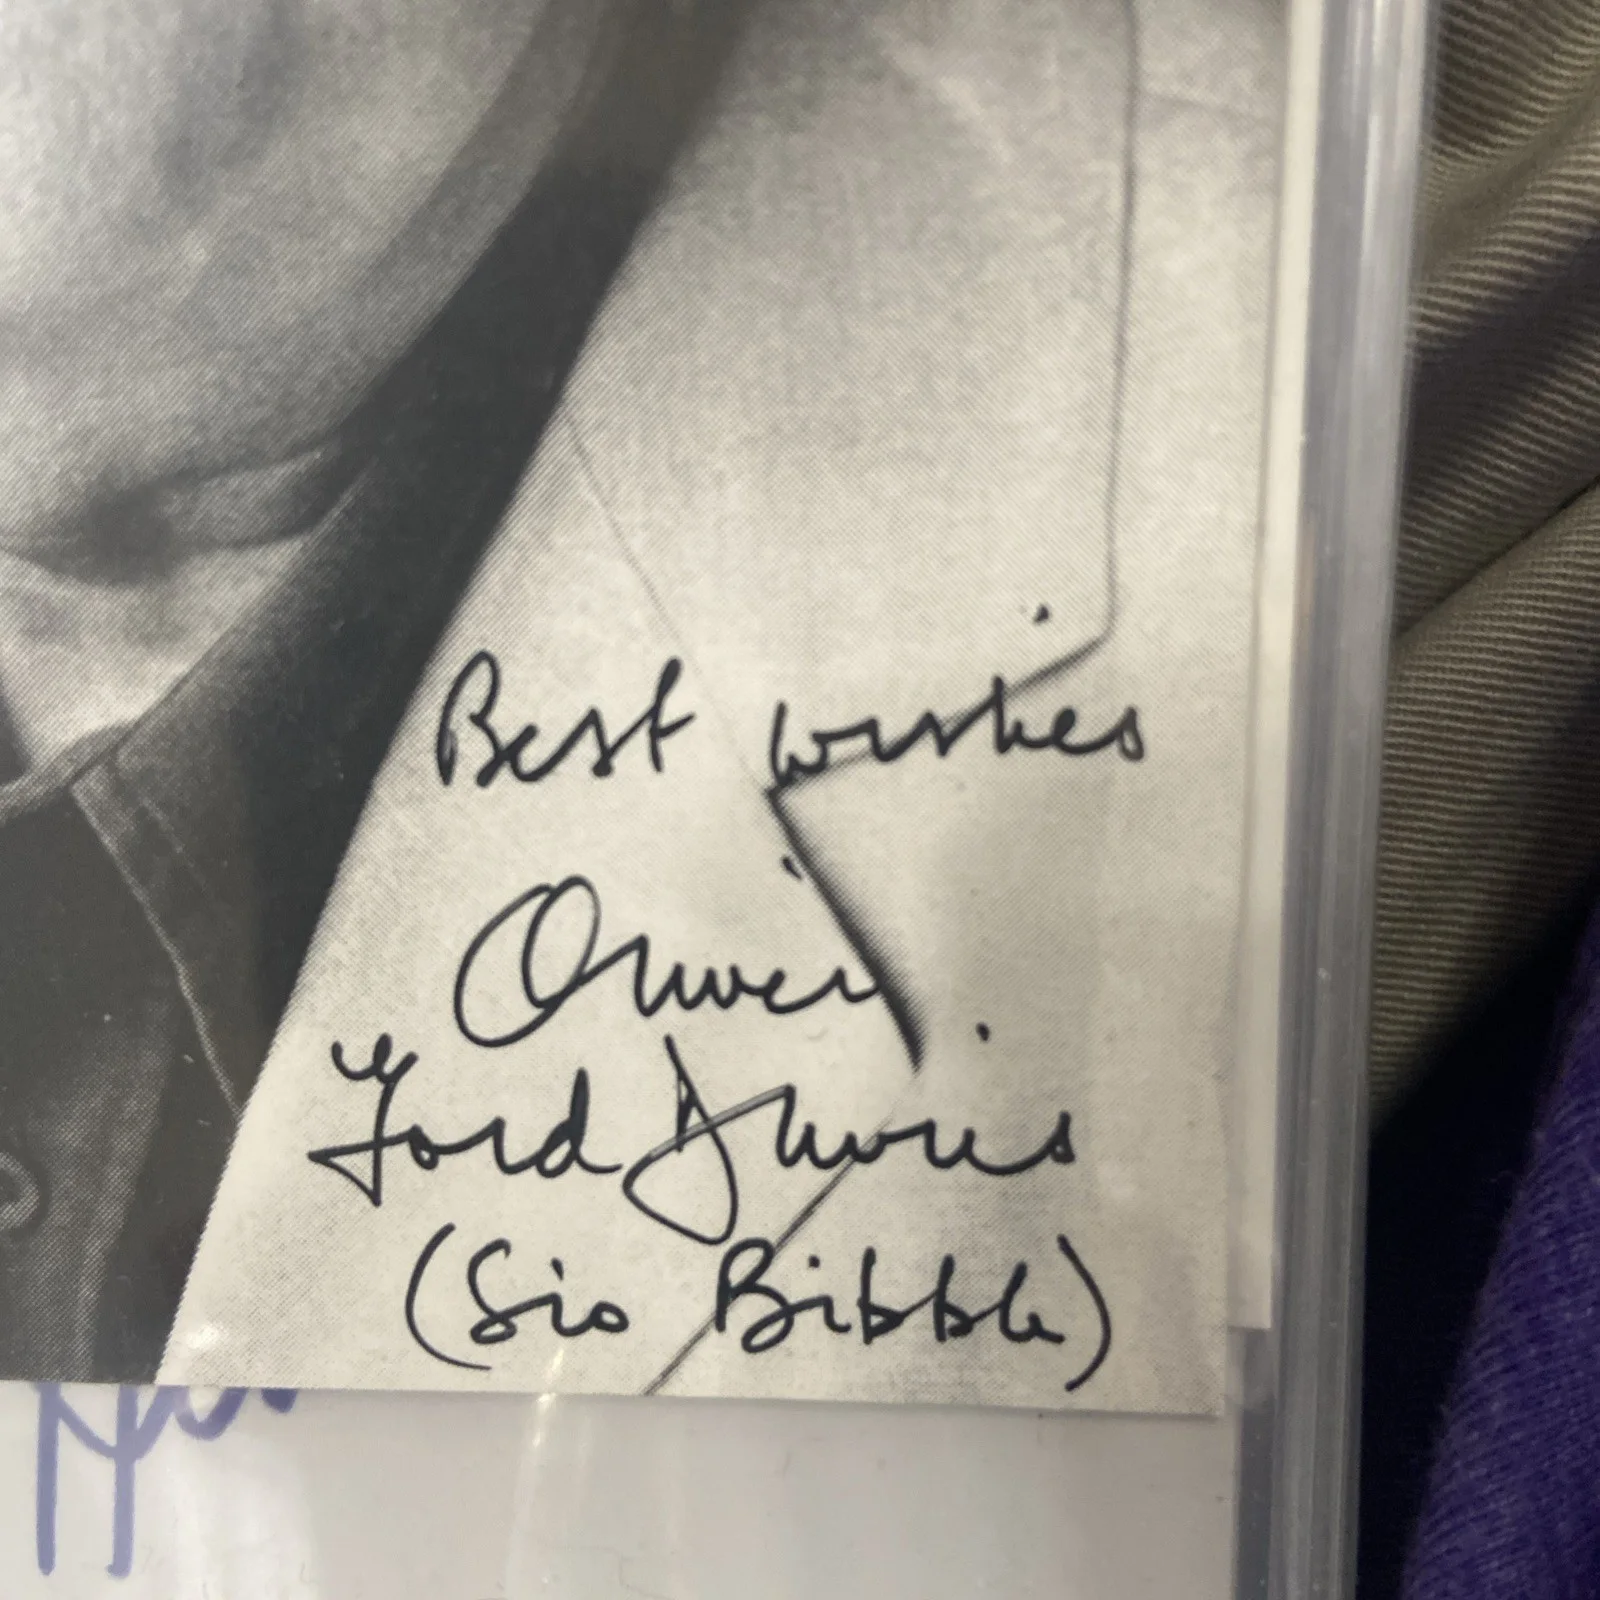 Best wishes
Oliver
Ford Davies
(Sio Bibble)